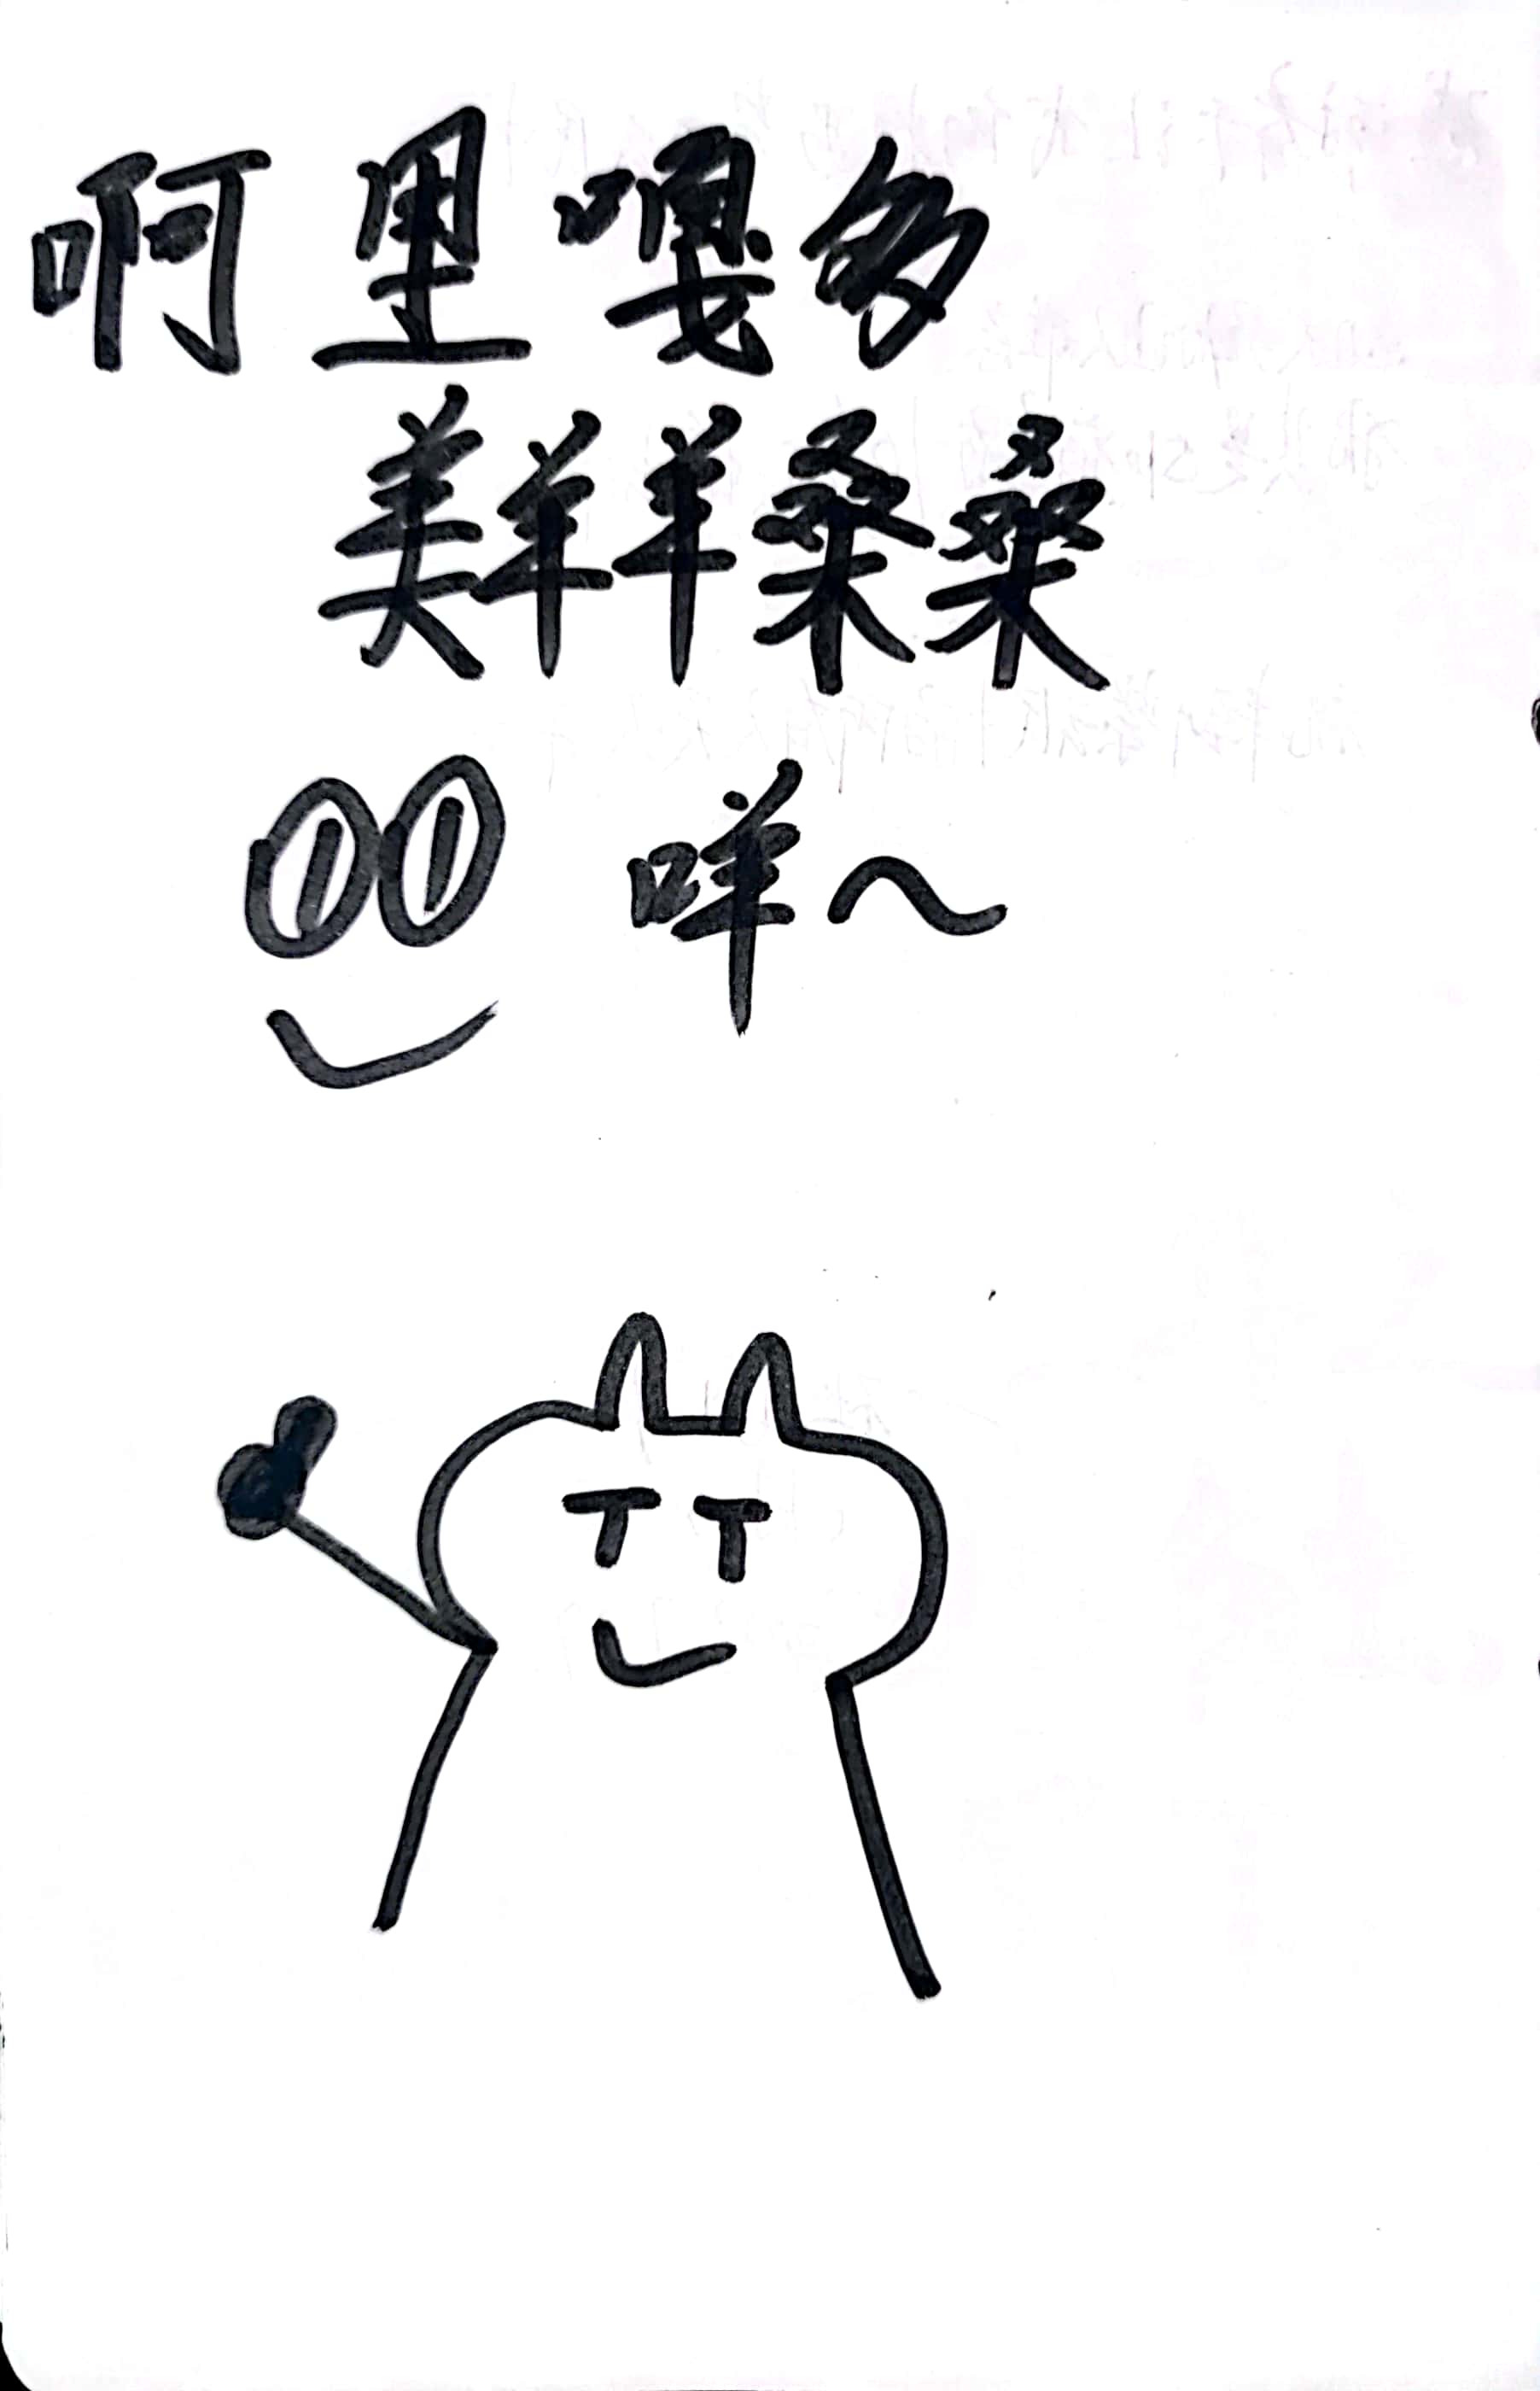 啊里嘎多
美羊羊桑桑
咩~